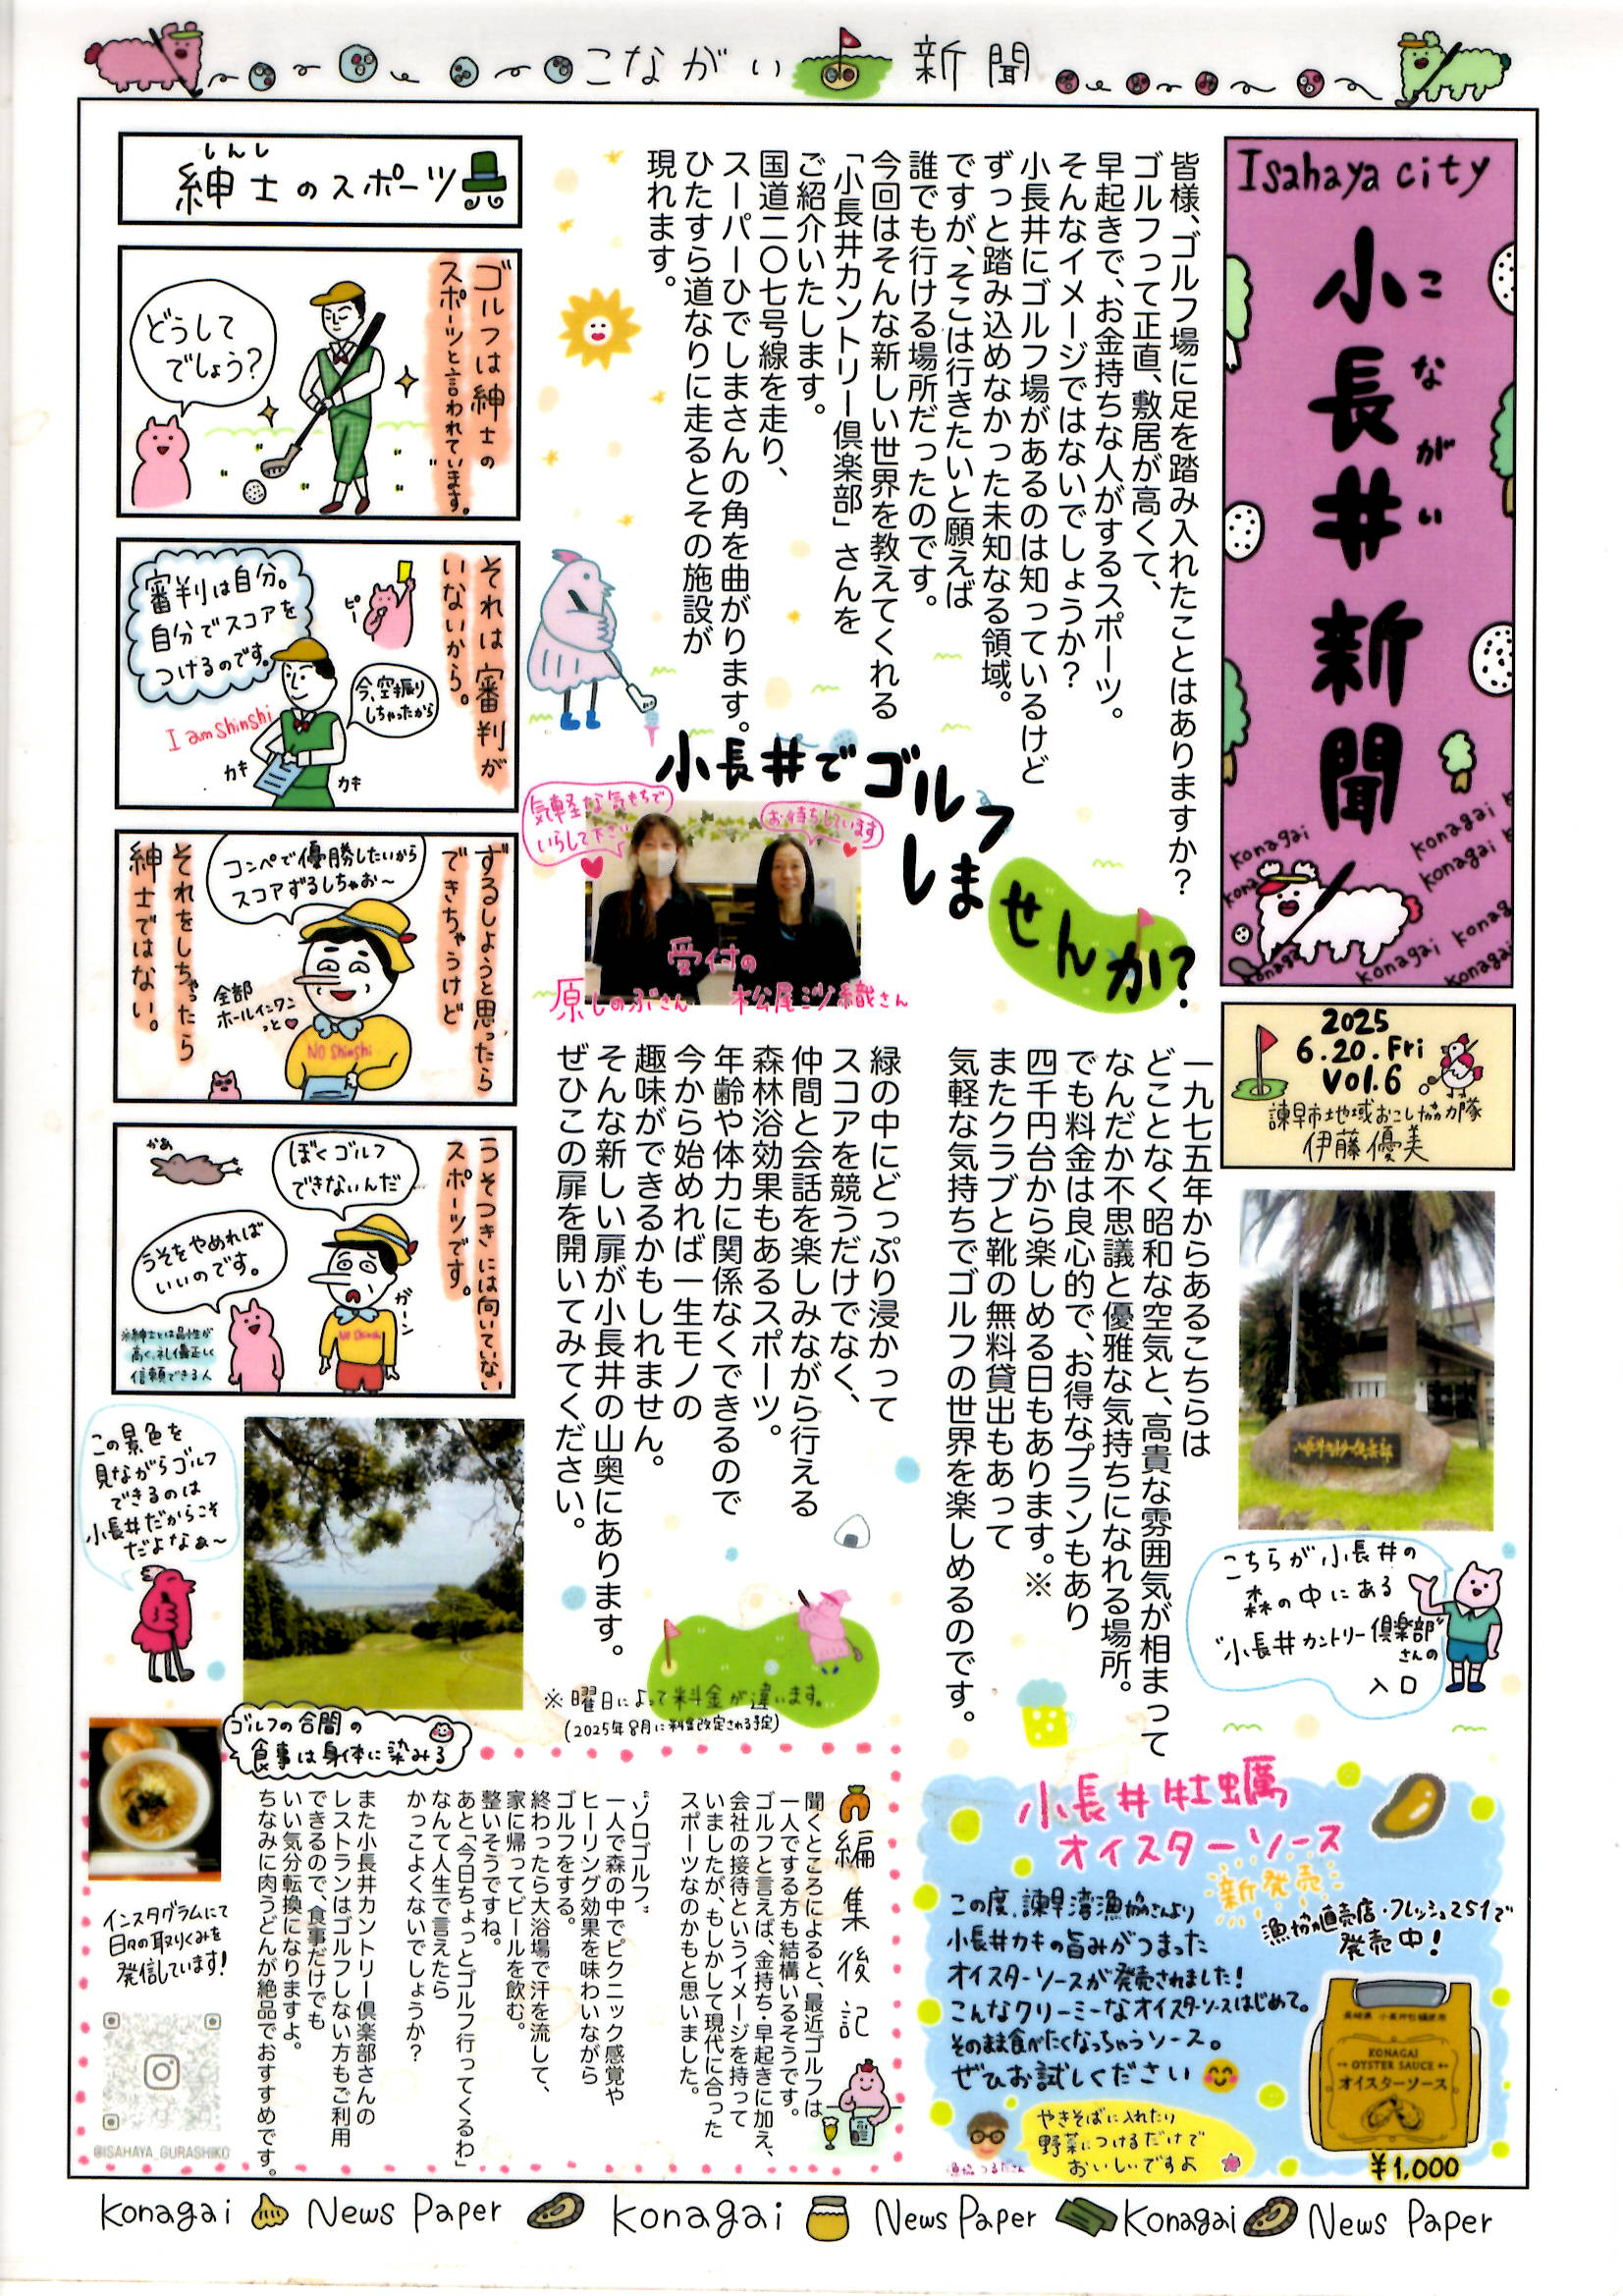 こながい新聞
Isahaya city
小長井新聞
こながい
konagai
konagai
konagai
konagai
konagai
2025
6.20.Fri
Vol.6
諫早市地域おこし協力隊
伊藤優美
皆様、ゴルフ場に足を踏み入れたことはありますか？
ゴルフって正直、敷居が高くて、
早起きで、お金持ちな人がするスポーツ。
そんなイメージではないでしょうか？
小長井にゴルフ場があるのは知っているけど
ずっと踏み込めなかった未知なる領域。
ですが、そこは行きたいと願えば
誰でも行ける場所だったのです。
今回はそんな新しい世界を教えてくれる
「小長井カントリー倶楽部」さんを
ご紹介いたします。
国道二〇七号線を走り、
スーパーひでしまさんの角を曲がります。
ひたすら道なりに走るとその施設が
現れます。
小長井でゴルフ
しま
せんか?
気軽な気もちで
いらして下さい
お待ちしています
受付の
原しのぶさん
松尾沙織さん
一九七五年からあるこちらは
どことなく昭和な空気と、高貴な雰囲気が相まって
なんだか不思議と優雅な気持ちになれる場所。
でも料金は良心的で、お得なプランもあり
四千円台から楽しめる日もあります。※
またクラブと靴の無料貸出もあって
気軽な気持ちでゴルフの世界を楽しめるのです。
緑の中にどっぷり浸かって
スコアを競うだけでなく、
仲間と会話を楽しみながら行える
森林浴効果もあるスポーツ。
年齢や体力に関係なくできるので
今から始めれば一生モノの
趣味ができるかもしれません。
そんな新しい扉が小長井の山奥にあります。
ぜひこの扉を開いてみてください。
※曜日によって料金が違います。
(2025年8月に料金改定される予定)
小長井カントリー倶楽部
こちらが小長井の
森の中にある
"小長井カントリー倶楽部"
さんの
入口
紳士のスポーツ
しんし
ゴルフは紳士の
スポーツと言われています。
どうして
でしょう?
それは審判が
いないから。
ピー
審判は自分。
自分でスコアを
つけるのです。
今、空振り
しちゃったから
I am shinshi
カキ
カキ
ずるしようと思ったら
できちゃうけど
コンペで優勝したいから
スコアずるしちゃお〜
全部
ホールインワン
っと
No Shinshi
それをしちゃったら
紳士ではない。
うそつきには向いていない
スポーツです。
ぼくゴルフ
できないんだ
かあ
ガーン
No Shinshi
うそをやめれば
いいのです。
※紳士とは品性が
高く、礼儀正しく
信頼できる人
この景色を
見ながらゴルフ
できるのは
小長井だからこそ
だよなぁ〜
ゴルフの合間の
食事は身体に染みる
編集後記
聞くところによると、最近ゴルフは
一人でする方も結構いるそうです。
ゴルフと言えば、金持ち・早起きに加え、
会社の接待というイメージを持って
いましたが、もしかして現代に合った
スポーツなのかもと思いました。
"ソロゴルフ"
一人で森の中でピクニック感覚や
ヒーリング効果を味わいながら
ゴルフをする。
終わったら大浴場で汗を流して、
家に帰ってビールを飲む。
整いそうですね。
あと「今日ちょっとゴルフ行ってくるわ」
なんて人生で言えたら
かっこよくないでしょうか？
また小長井カントリー倶楽部さんの
レストランはゴルフしない方もご利用
できるので、食事だけでも
いい気分転換になりますよ。
ちなみに肉うどんが絶品でおすすめです。
インスタグラムにて
日々の取りくみを
発信しています!
@ISAHAYA_GURASHIKO
小長井牡蠣
オイスターソース
新発売
漁協直売店・フレッシュ251で
発売中!
この度、諫早湾漁協さんより
小長井カキの旨みがつまった
オイスターソースが発売されました!
こんなクリーミーなオイスターソースはじめて。
そのまま食べたくなっちゃうソース。
ぜひお試しください
漁協つるださん
やきそばに入れたり
野菜につけるだけで
おいしいですよ
長崎県 小長井牡蠣使用
KONAGAI
OYSTER SAUCE
オイスターソース
¥1,000
Konagai News Paper Konagai News Paper Konagai News Paper